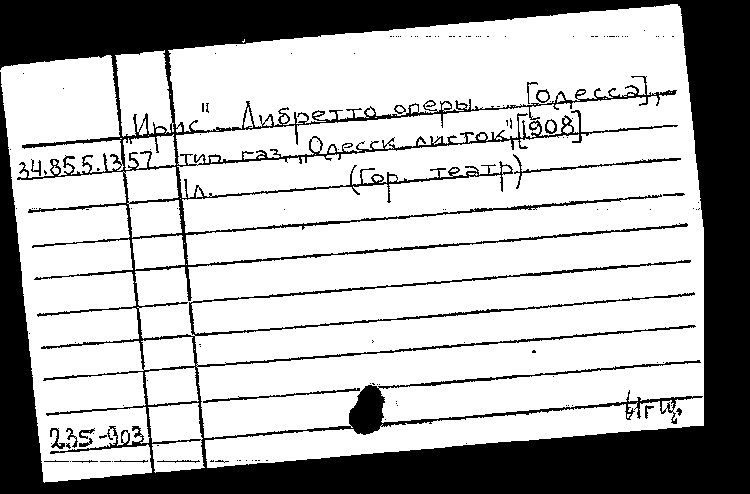 „Ирис". Либретто оперы. [Одесса],
34.85.5.1357 тип. газ. „Одесск. листок", [1908].
1л. (Гор. театр)
235-903